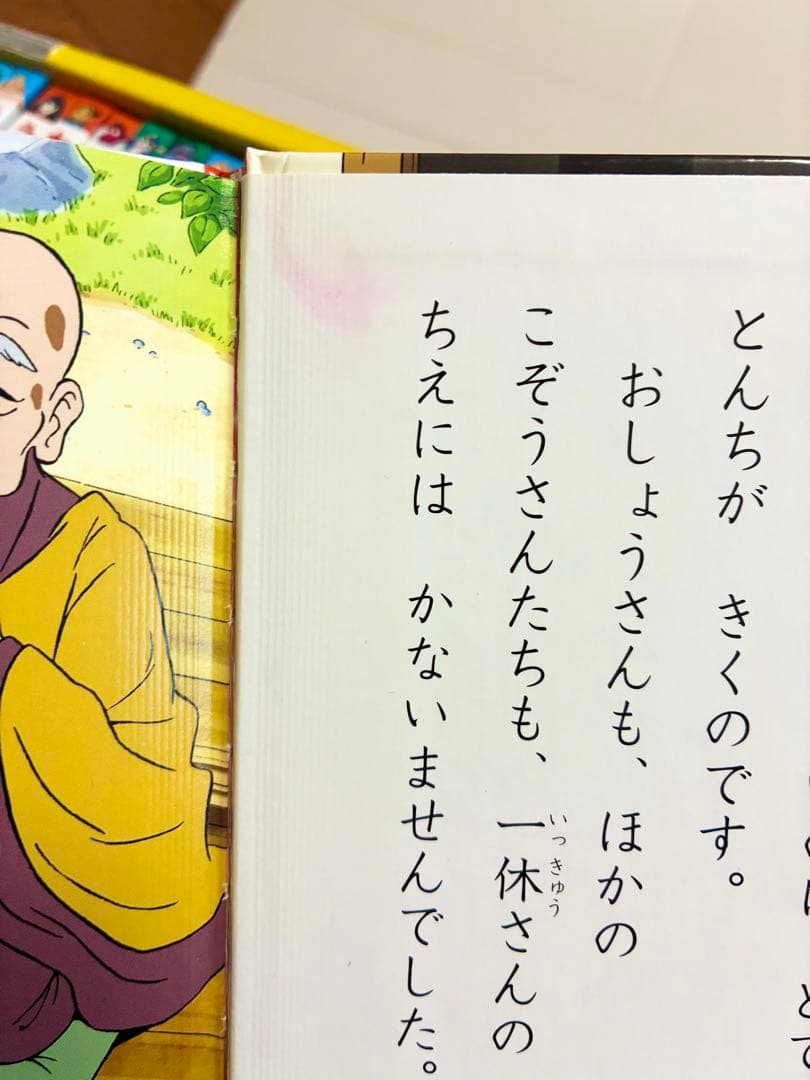 とんちが　きくのです。
おしょうさんも、ほかの
こぞうさんたちも、一休さんの
いっきゅう
ちえには　かないませんでした。